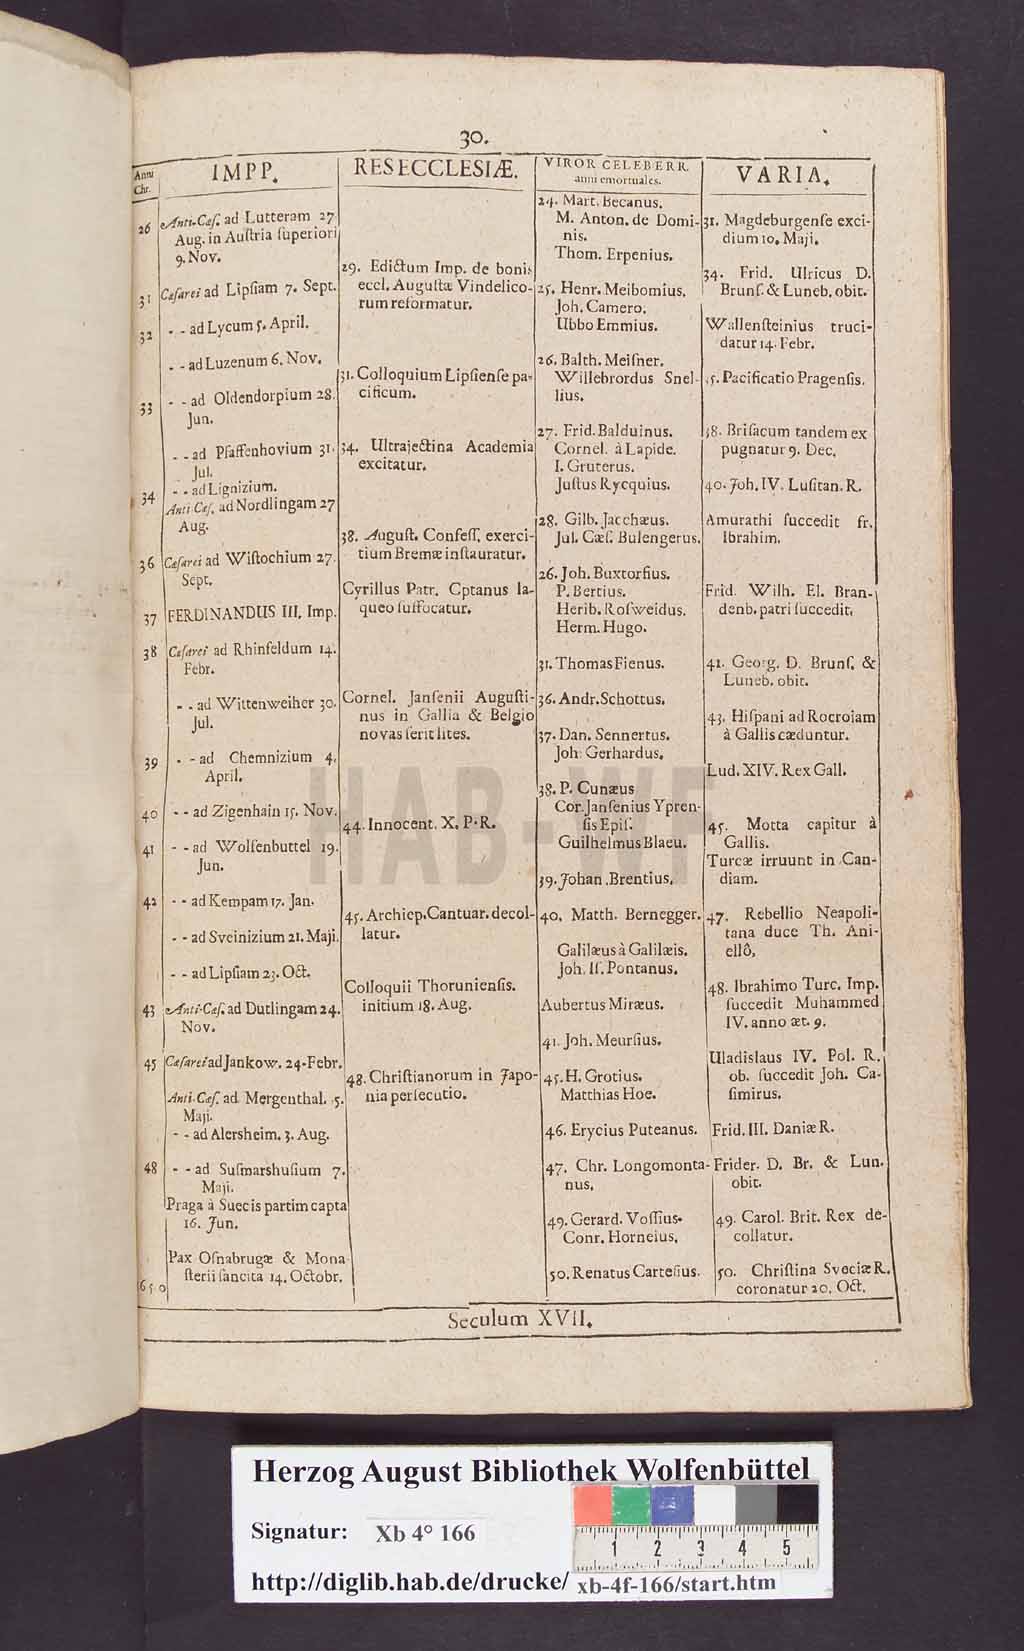 30.
Anni
Chr.
IMPP.
26
Anti-Cæſ. ad Lutteram 27
Aug. in Auſtria ſuperiori
9. Nov.
31
Cæſarei ad Lipſiam 7. Sept.
32
- - ad Lycum 5. April.
- - ad Luzenum 6. Nov.
33
- - ad Oldendorpium 28.
Jun.
- - ad Pfaffenhovium 31.
Jul.
- - ad Lignizium.
34
Anti Cæſ. ad Nordlingam 27
Aug.
36
Cæſarei ad Wiſtochium 27.
Sept.
37
FERDINANDUS III. Imp.
38
Cæſarei ad Rhinfeldum 14.
Febr.
- - ad Wittenweiher 30.
Jul.
39
- - ad Chemnizium 4.
April.
40
- - ad Zigenhain 15. Nov.
41
- - ad Wolfenbuttel 19.
Jun.
42
- - ad Kempam 17. Jan.
- - ad Sveinizium 21. Maji.
- - ad Lipſiam 23. Oct.
43
Anti-Cæſ. ad Dutlingam 24.
Nov.
45
Cæſarei ad Jankow. 24. Febr.
Anti-Cæſ. ad Mergenthal. 5.
Maji.
- - ad Alersheim. 3. Aug.
48
- - ad Suſmarshuſium 7.
Maji.
Praga à Suecis partim capta
16. Jun.
Pax Oſnabrugæ & Mona
ſterii ſancita 14. Octobr.
650
RES ECCLESIÆ.
29. Edictum Imp. de bonis
eccl. Auguſtæ Vindelico-
rum reformatur.
31. Colloquium Lipſienſe pa-
cificum.
34. Ultrajectina Academia
excitatur.
38. Auguſt. Confeſſ. exerci-
tium Bremæ inſtauratur.
Cyrillus Patr. Cptanus la-
queo ſuffocatur.
Cornel. Janſenii Auguſti-
nus in Gallia & Belgio
novas ſerit lites.
44. Innocent. X. P. R.
45. Archiep. Cantuar. decol-
latur.
Colloquii Thorunienſis.
initium 18. Aug.
48. Chriſtianorum in Japo-
nia perſecutio.
VIROR CELEBERR.
anni emortuales.
24. Mart. Becanus.
M. Anton. de Domi-
nis.
Thom. Erpenius.
25. Henr. Meibomius.
Joh. Camero.
Ubbo Emmius.
26. Balth. Meiſner.
Willebrordus Snel-
lius.
27. Frid. Balduinus.
Cornel. à Lapide.
I. Gruterus.
Juſtus Rycquius.
28. Gilb. Jacchæus.
Jul. Cæſ. Bulengerus.
26. Joh. Buxtorfius.
P. Bertius.
Herib. Roſweidus.
Herm. Hugo.
31. Thomas Fienus.
36. Andr. Schottus.
37. Dan. Sennertus.
Joh. Gerhardus.
38. P. Cunæus
Cor. Janſenius Ypren-
ſis Epiſ.
Guilhelmus Blaeu.
39. Johan. Brentius.
40. Matth. Bernegger.
Galilæus à Galilæis.
Joh. Iſ. Pontanus.
Aubertus Miræus.
41. Joh. Meurſius.
45. H. Grotius.
Matthias Hoe.
46. Erycius Puteanus.
47. Chr. Longomonta-
nus.
49. Gerard. Voſſius.
Conr. Horneius.
50. Renatus Carteſius.
VARIA.
31. Magdeburgenſe exci-
dium 10. Maji.
34. Frid. Ulricus D.
Brunſ. & Luneb. obit.
Wallenſteinius truci-
datur 14. Febr.
5. Pacificatio Pragenſis.
38. Briſacum tandem ex
pugnatur 9. Dec.
40. Joh. IV. Luſitan. R.
Amurathi ſuccedit fr.
Ibrahim.
Frid. Wilh. El. Bran-
denb. patri ſuccedit.
41. Georg. D. Brunſ. &
Luneb. obit.
43. Hiſpani ad Rocroiam
à Gallis cæduntur.
Lud. XIV. Rex Gall.
45. Motta capitur à
Gallis.
Turcæ irruunt in Can-
diam.
47. Rebellio Neapoli-
tana duce Th. Ani-
ellô.
48. Ibrahimo Turc. Imp.
ſuccedit Muhammed
IV. anno æt. 9.
Uladislaus IV. Pol. R.
ob. ſuccedit Joh. Ca-
ſimirus.
Frid. III. Daniæ R.
Frider. D. Br. & Lun.
obit.
49. Carol. Brit. Rex de-
collatur.
50. Chriſtina Sveciæ R.
coronatur 20. Oct.
Seculum XVII.
HAB-WF
Herzog August Bibliothek Wolfenbüttel
Signatur: Xb 4° 166
1 2 3 4 5
http://diglib.hab.de/drucke/ xb-4f-166/start.htm